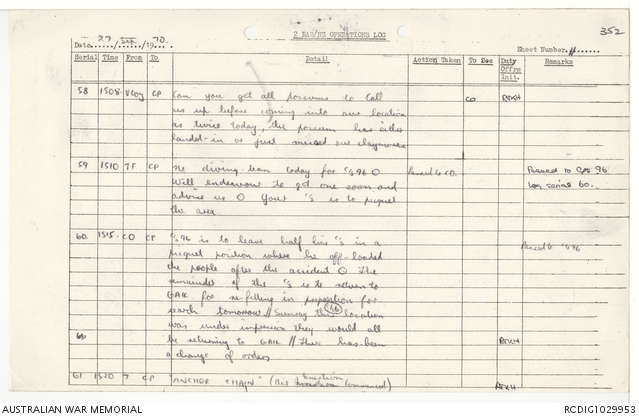 2 RAR/NZ OPERATIONS LOG
352
Date 27 / SEP / 1970.
Sheet Number 11
Serial Time From To Detail Action Taken To See Duty Offrs Init. Remarks
58 1508 V Coy CP Can you get all possums to call CO
us up before coming into our location
as twice today, the possum has either
landed in or just missed our claymores
59 1510 TF CP No diving team today for 96 O Passed to CO. Passed to C/S 96
Will endeavour to get one soon and Log serial 60.
advise us O Your is to picquet
the area
60 1515 CO CP 96 is to leave half his in a
picquet position where he off-loaded Passed to 96
the people after the accident O The
remainder of the is to return to
GAK for re-fitting in preparation for
search tomorrow // location
was under impression they would all
be returning to GAK // There has been
a change of orders
61 1520 CP "ANCHOR CHAIN"
AUSTRALIAN WAR MEMORIAL
RCDIG1029953